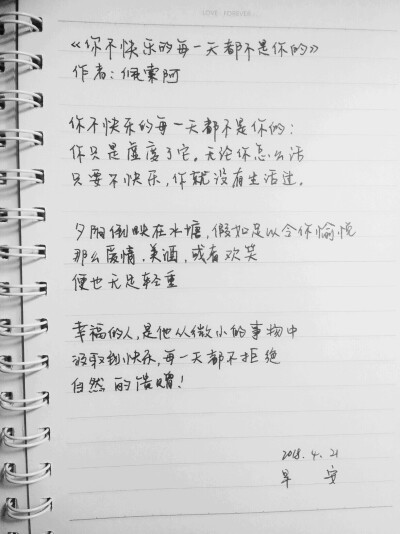 LOVE FOREVER
《你不快乐的每一天都不是你的》
作者：佩索阿
你不快乐的每一天都不是你的：
你只是虚度了它。无论你怎么活
只要不快乐，你就没有生活过。
夕阳倒映在水塘，假如足以令你愉悦
那么爱情，美酒，或者欢笑
便也无足轻重
幸福的人，是他从微小的事物中
汲取到快乐，每一天都不拒绝
自然的馈赠！
2018.4.21
早安